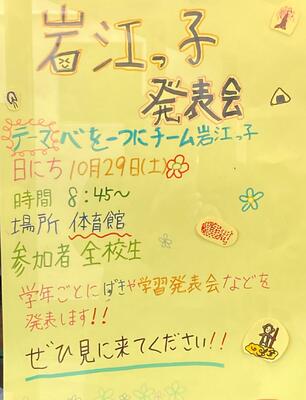 岩江っ子
発表会
テーマ 心を一つにチーム岩江っ子
日にち 10月29日(土)
時間 8:45~
場所 体育館
参加者 全校生
学年ごとにげきや学習発表会などを
発表します!!
ぜひ見に来てください!!